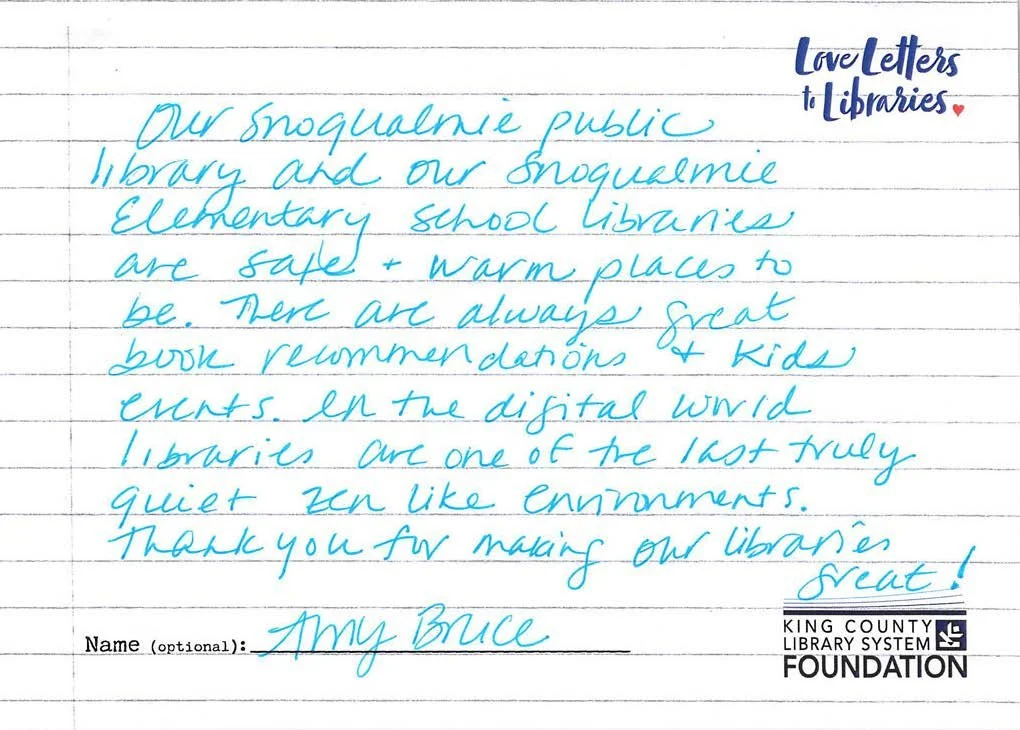 Love Letters
to Libraries
Our Snoqualmie public
library and our Snoqualmie
Elementary school libraries
are safe + warm places to
be. There are always great
book recommendations + kids
events. In the digital world
libraries are one of the last truly
quiet zen like environments.
Thank you for making our libraries
great!
Name (optional): Amy Bruce
KING COUNTY
LIBRARY SYSTEM
FOUNDATION